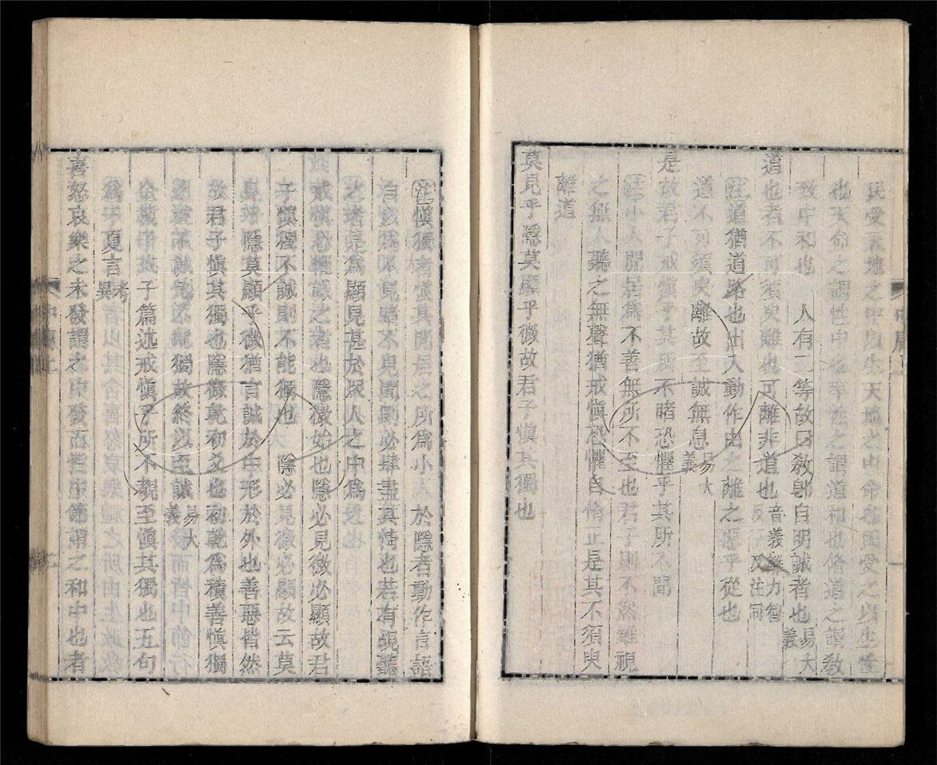 民受天地之中以生天地之中命也民受之以生性
也天命之謂性中也率性之謂道和也脩道之謂敎
致中和也　人有二等故曰敎卽自明誠者也易大義
道也者不可須臾離也可離非道也音義離力智反下及注同
注道猶道路也出入動作由之離之惡乎從也
道不可須臾離故至誠無息易大義
是故君子戒愼乎其所不睹恐懼乎其所不聞
注小人閒居爲不善無所不至也君子則不然雖視
之無人聽之無聲猶戒愼恐懼自脩正是其不須臾
離道
莫見乎隱莫顯乎微故君子愼其獨也
注愼獨者愼其閒居之所爲小人於隱者動作言語
自以爲不見睹不見聞則必肆盡其情也若有覘聽
之者是爲顯見甚於衆人之中爲之也
戒愼恐懼誠之者也隱微始也隱必見微必顯故君
子愼獨不誠則不能獨也　隱必見微必顯故云莫
見乎隱莫顯乎微猶言誠於中形於外也善惡皆然
故君子愼其獨也隱微乾初爻也初乾爲積善愼獨
獨故終以至誠易大義
子篇述戒愼乎所不覩至愼其獨也五句
爲子夏言考異
喜怒哀樂之未發謂之中發而皆中節謂之和中也者